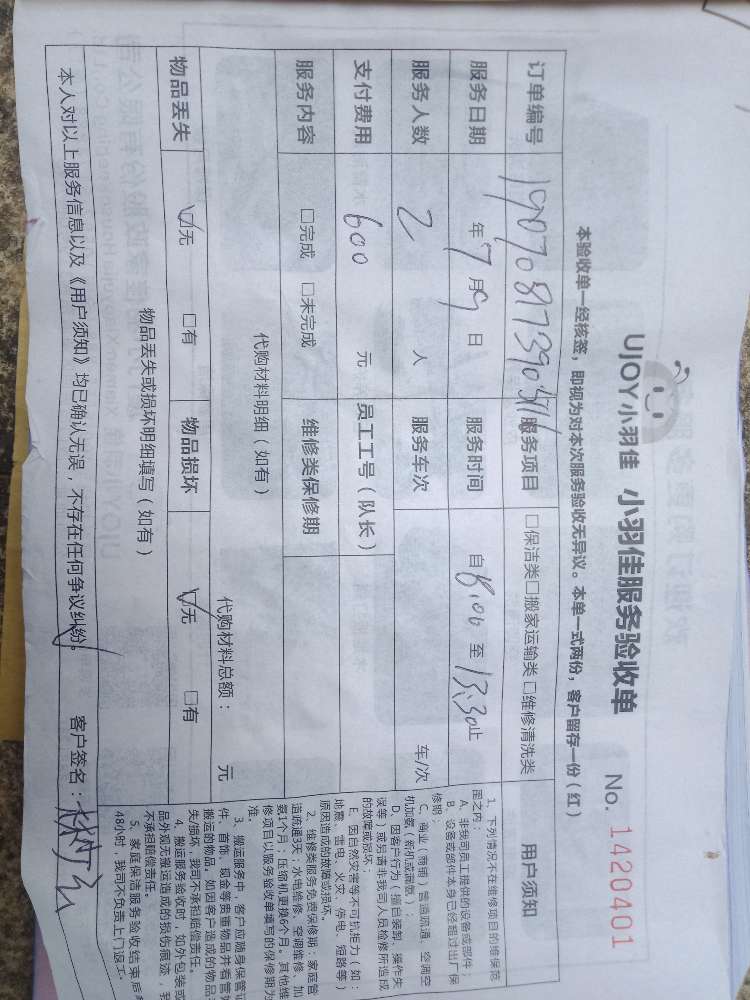 UJOY小羽佳 小羽佳服务验收单 No. 1420401
本验收单一经核签，即视为对本次服务验收无异议。本单一式两份，客户留存一份（红）
订单编号 服务项目 □保洁类□搬家运输类□维修清洗类
服务日期 年7月9日 服务时间 自8:00至13:30止
服务人数 2 人 服务车次 车/次
支付费用 600 元 员工工号（队长）
服务内容 □完成 □未完成 维修类保修期
代购材料明细（如有） 代购材料总额： 元
物品丢失 ☑无 □有 物品损坏 ☑无 □有
物品丢失或损坏明细填写（如有）
本人对以上服务信息以及《用户须知》均已确认无误，不存在任何争议纠纷。 客户签名：
用户须知
1、下列情况不在维修项目的维保范
围之内：
A、非我司员工提供的设备或部件；
B、设备或部件本身已经超过出厂保
修期；
C、商业（商铺）管道疏通、空调空
机加氨（新机或漏氨）；
D、因客户行为（擅自装卸、操作失
误等）或另请非我司人员检修所造成
的故障或损坏；
E、因自然灾害等不可抗拒力（如：
地震、雷电、火灾、停电、短路等）
原因造成的故障或损坏。
2、维修类服务免费保修期：家庭管
道疏通3天；水电维修、空调维修、加
氨1个月；压缩机更换6个月。其他维
修项目以服务验收单填写的保修期为
准。
3、搬运服务中，客户应随身保管证
件、首饰、现金等贵重物品并看管好
搬运的物品。如因客户造成的物品丢
失/损坏，我司不承担赔偿责任。
4、搬运服务验收时，如外包装或
品外观无搬运造成的损伤痕迹，我
不承担赔偿责任。
5、家庭保洁服务验收结束后
48小时，我司不负责上门返工。